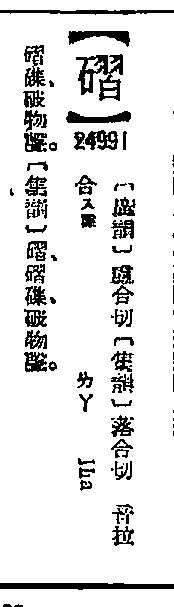 【磖】
24991
〔廣韻〕盧合切〔集韻〕落合切 音拉
合入聲 ㄌㄚ Lha
磖磼、破物聲。〔集韻〕磖、磖磼、破物聲。